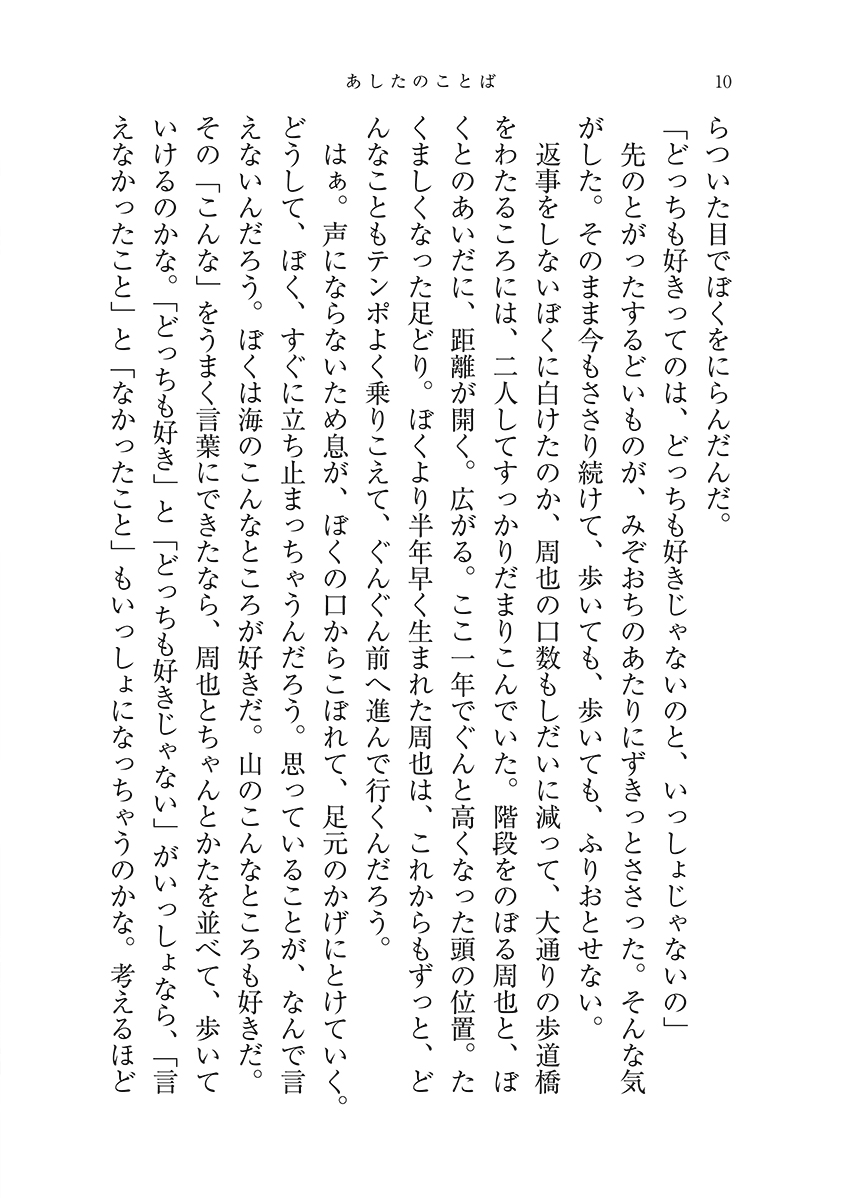 あしたのことば
10
らついた目でぼくをにらんだんだ。
「どっちも好きってのは、どっちも好きじゃないのと、いっしょじゃないの」
先のとがったするどいものが、みぞおちのあたりにずきっとささった。そんな気
がした。そのまま今もささり続けて、歩いても、歩いても、ふりおとせない。
返事をしないぼくに白けたのか、周也の口数もしだいに減って、大通りの歩道橋
をわたるころには、二人してすっかりだまりこんでいた。階段をのぼる周也と、ぼ
くとのあいだに、距離が開く。広がる。ここ一年でぐんと高くなった頭の位置。た
くましくなった足どり。ぼくより半年早く生まれた周也は、これからもずっと、ど
んなこともテンポよく乗りこえて、ぐんぐん前へ進んで行くんだろう。
はぁ。声にならないため息が、ぼくの口からこぼれて、足元のかげにとけていく。
どうして、ぼく、すぐに立ち止まっちゃうんだろう。思っていることが、なんで言
えないんだろう。ぼくは海のこんなところが好きだ。山のこんなところも好きだ。
その「こんな」をうまく言葉にできたなら、周也とちゃんとかたを並べて、歩いて
いけるのかな。「どっちも好き」と「どっちも好きじゃない」がいっしょなら、「言
えなかったこと」と「なかったこと」もいっしょになっちゃうのかな。考えるほど